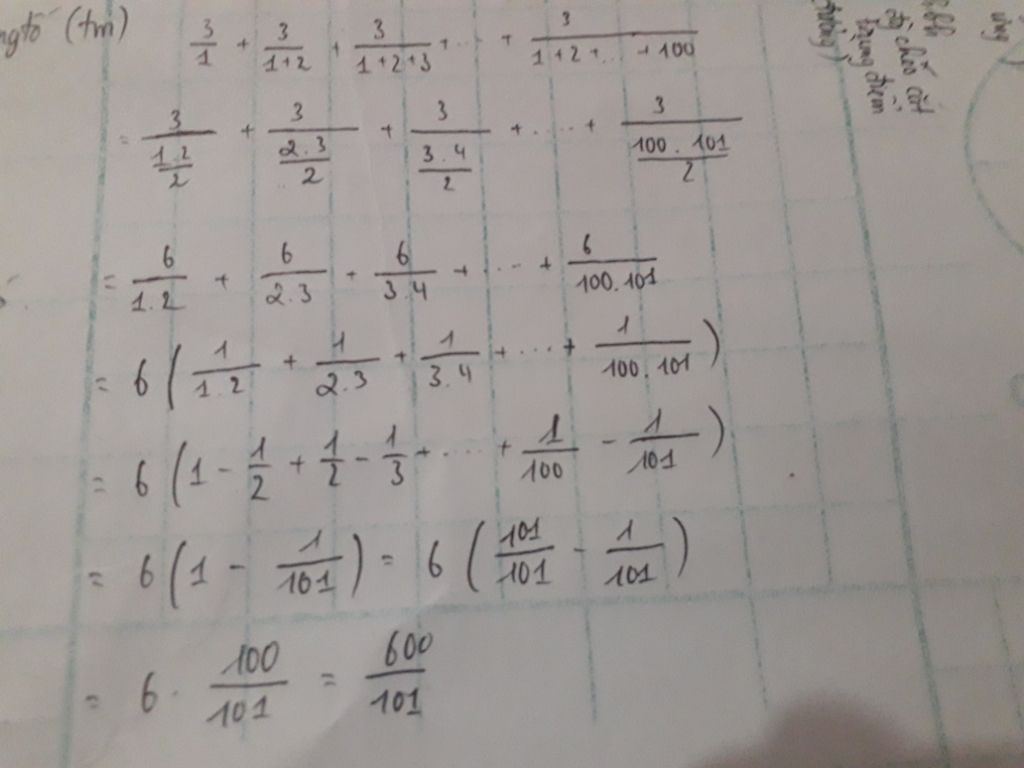 ngtố (tm)
3/1 + 3/(1+2) + 3/(1+2+3) + ... + 3/(1+2+...+100)
= 3/((1.2)/2) + 3/((2.3)/2) + 3/((3.4)/2) + .... + 3/((100.101)/2)
= 6/(1.2) + 6/(2.3) + 6/(3.4) + ... + 6/(100.101)
= 6 (1/(1.2) + 1/(2.3) + 1/(3.4) + ... + 1/(100.101))
= 6 (1 - 1/2 + 1/2 - 1/3 + .... + 1/100 - 1/101)
= 6 (1 - 1/101) = 6 (101/101 - 1/101)
= 6 . 100/101 = 600/101
chéo cắt
trung điểm
đường)